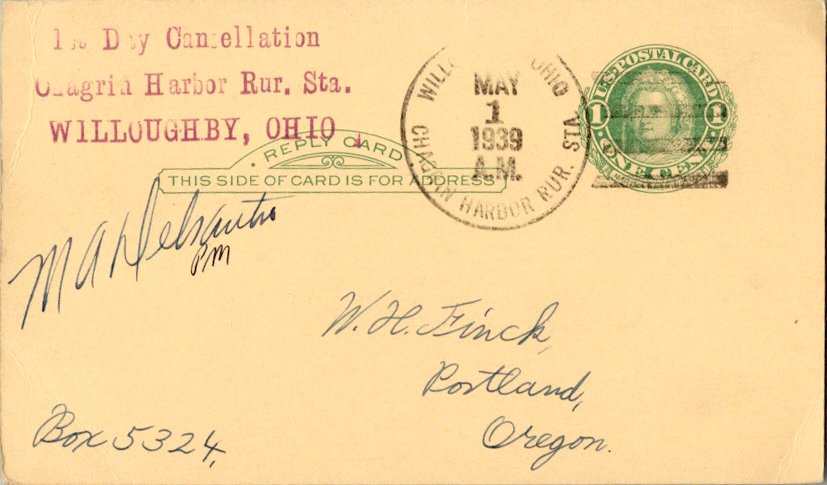 1st Day Cancellation
Chagrin Harbor Rur. Sta.
WILLOUGHBY, OHIO
WILLOUGHBY, OHIO
CHAGRIN HARBOR RUR. STA.
MAY
1
1939
A.M.
U.S. POSTAL CARD
1 1
ONE CENT
REPLY CARD
THIS SIDE OF CARD IS FOR ADDRESS
M A Delsantro
PM
W. H. Finck,
Portland,
Oregon.
Box 5324,